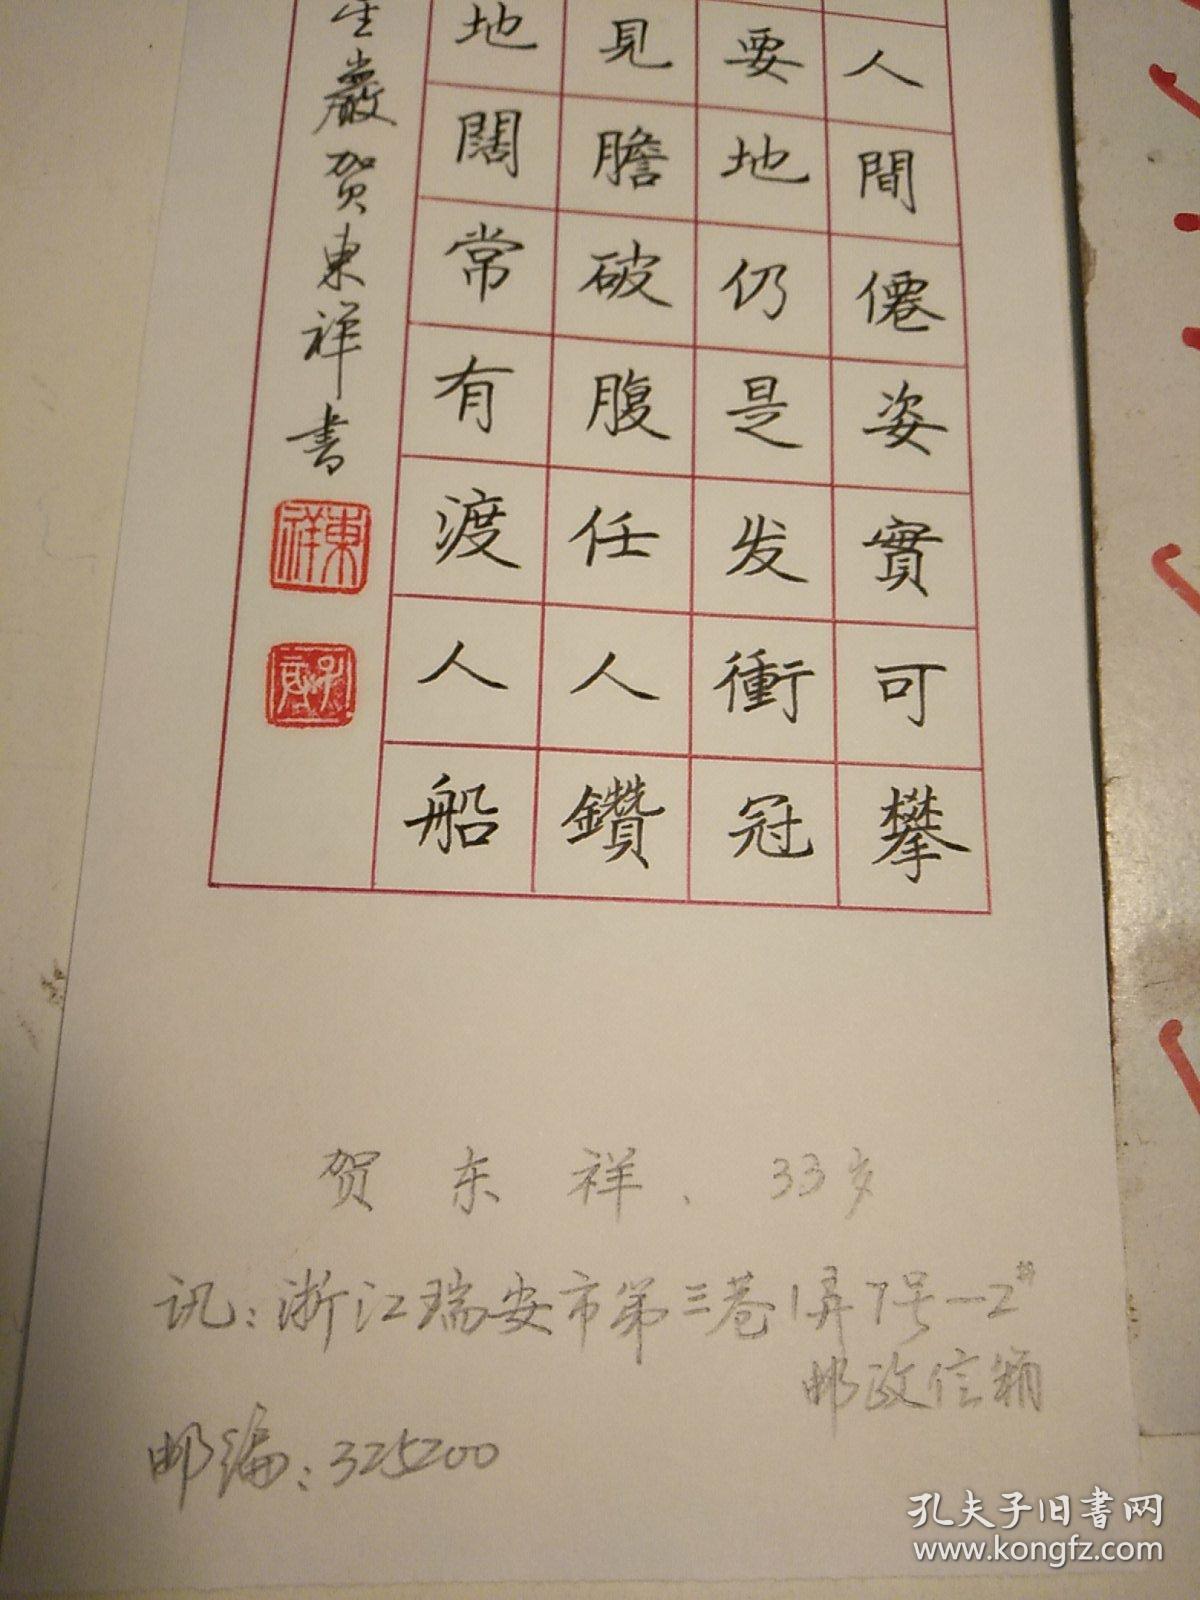 人間僊姿實可攀
要地仍是发衝冠
見膽破腹任人鑽
地闊常有渡人船
生嚴賀東祥書
東祥
贺东祥、33岁
讯:浙江瑞安市第三巷1弄7号-2#
邮政信箱
邮编:325200
孔夫子旧书网
www.kongfz.com